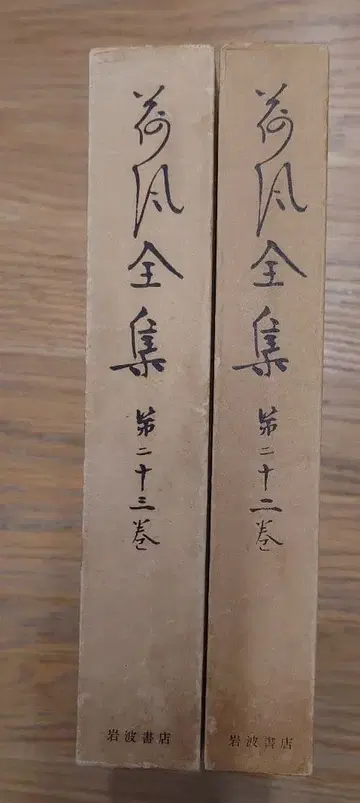 荷風全集 第二十三巻
岩波書店
荷風全集 第二十二巻
岩波書店